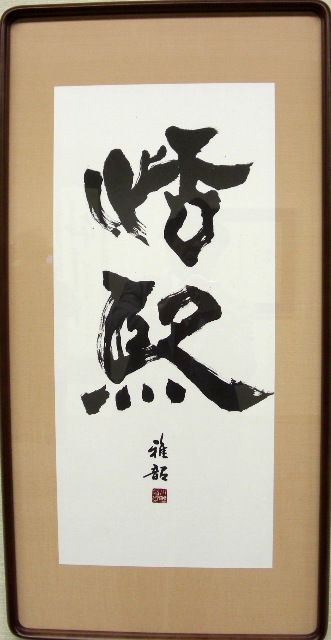 恬熙
雅韶